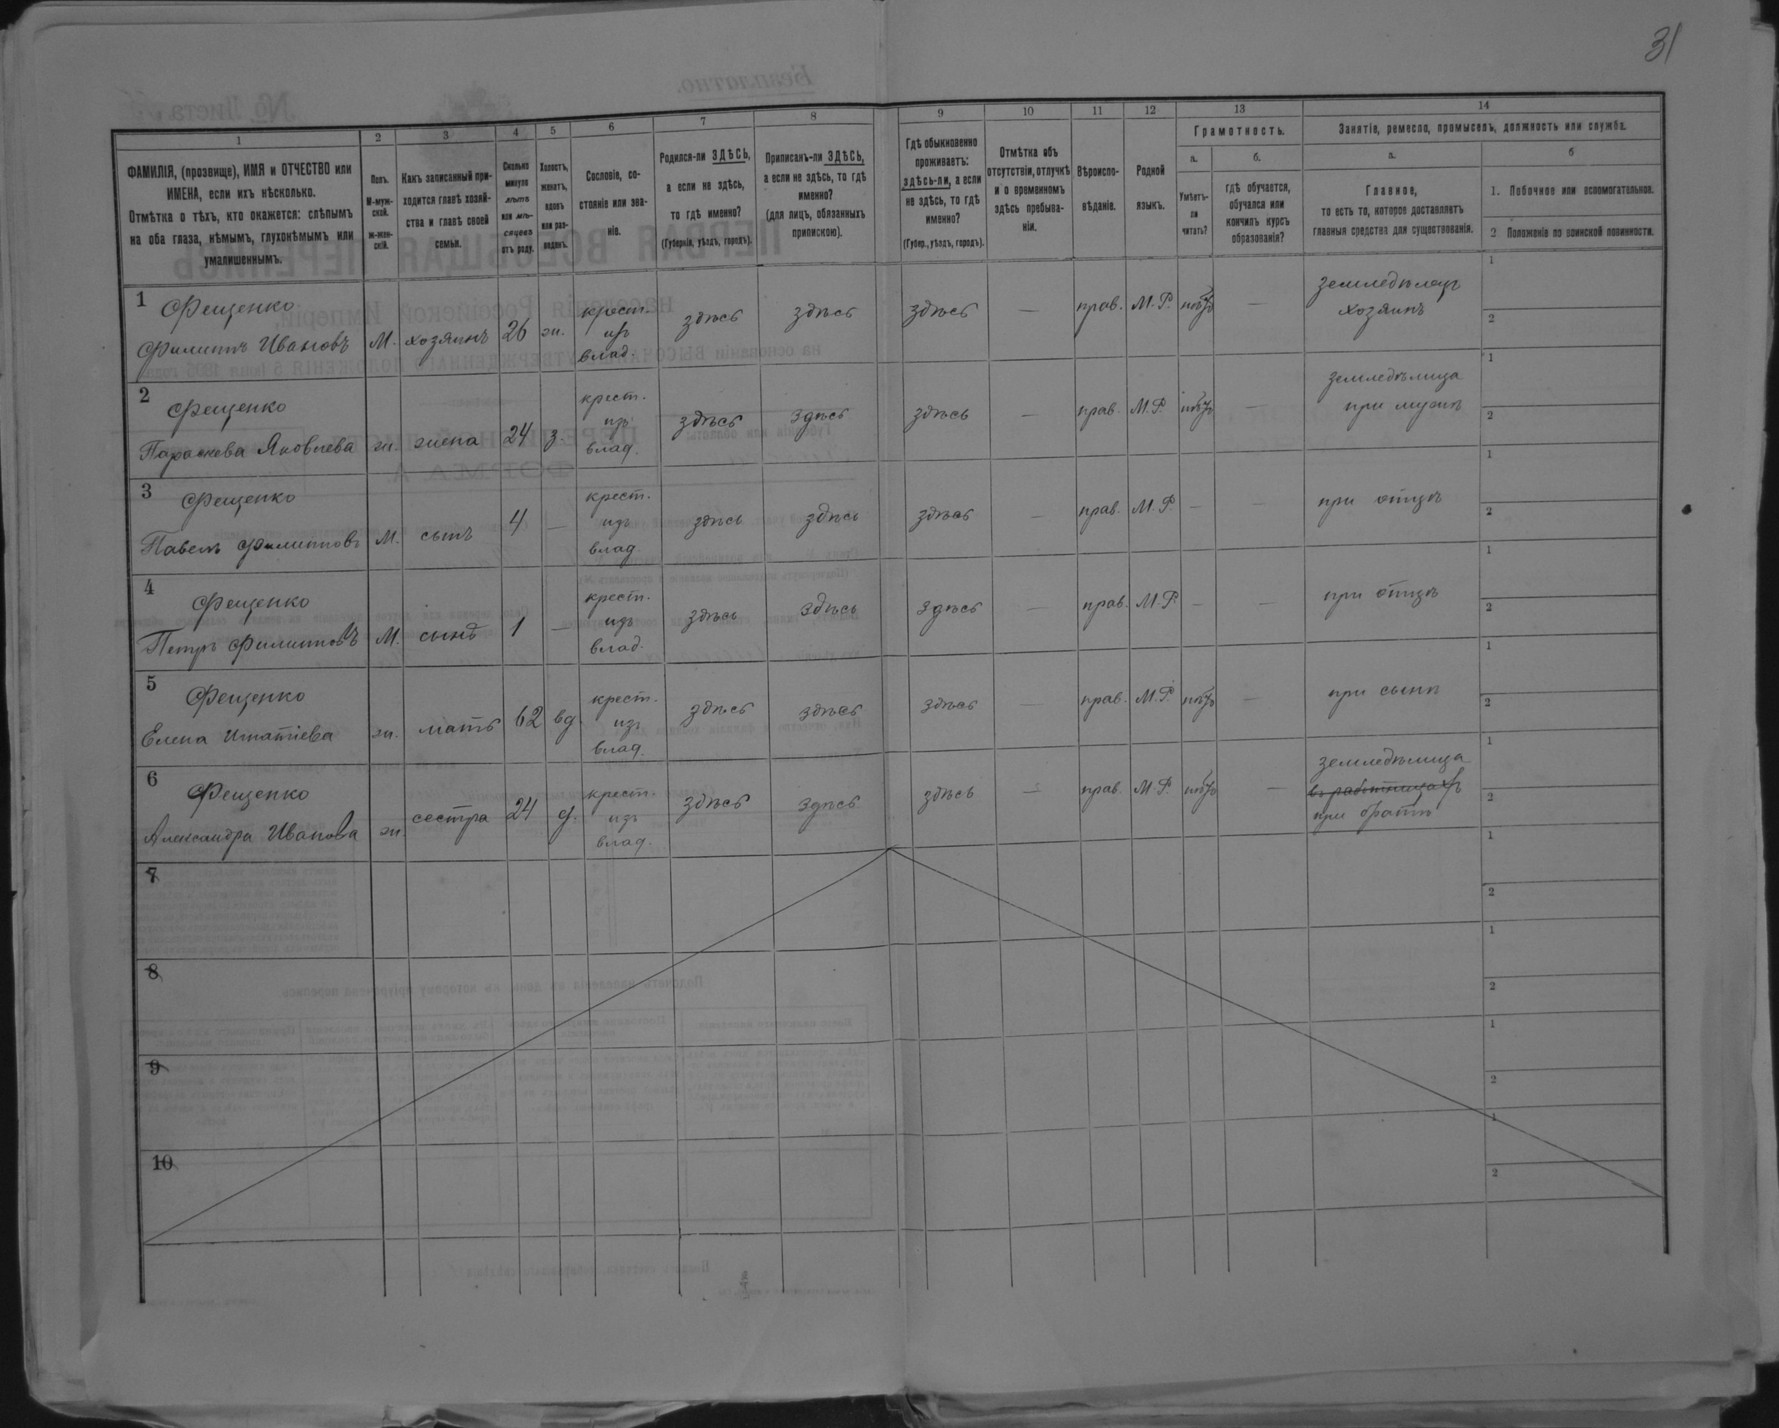 31
1 2 3 4 5 6 7 8 9 10 11 12 13 14
ФАМИЛІЯ, (прозвище), ИМЯ и ОТЧЕСТВО или
ИМЕНА, если ихъ нѣсколько.
Отмѣтка о тѣхъ, кто окажется: слѣпымъ
на оба глаза, нѣмымъ, глухонѣмымъ или
умалишеннымъ.
Полъ.
М-муж-
ской.
ж-жен-
скій.
Какъ записанный при-
ходится главѣ хозяй-
ства и главѣ своей
семьи.
Сколько
минуло
лѣтъ
или мѣ-
сяцевъ
отъ роду.
Холостъ,
женатъ,
вдовъ
или раз-
веденъ.
Сословіе, со-
стояніе или зва-
ніе.
Родился-ли ЗДѢСЬ,
а если не здѣсь,
то гдѣ именно?
(Губернія, уѣздъ, городъ).
Приписанъ-ли ЗДѢСЬ,
а если не здѣсь, то гдѣ
именно?
(для лицъ, обязанныхъ
припискою).
Гдѣ обыкновенно
проживаетъ:
здѣсь-ли, а если
не здѣсь, то гдѣ
именно?
(Губер., уѣздъ, городъ).
Отмѣтка объ
отсутствіи, отлучкѣ
и о временномъ
здѣсь пребыва-
ніи.
Вѣроиспо-
вѣданіе.
Родной
языкъ.
Грамотность.
а.
Умѣетъ-
ли
читать?
б.
гдѣ обучается,
обучался или
кончилъ курсъ
образованія?
Занятіе, ремесло, промыселъ, должность или служба.
а.
Главное,
то есть то, которое доставляетъ
главныя средства для существованія.
б
1. Побочное или вспомогательное.
2 Положеніе по воинской повинности.
1 Фещенко
Филиппъ Ивановъ М. хозяинъ 26 ж. крест.
изъ
влад. здѣсь здѣсь здѣсь — прав. М.Р. нѣтъ — земледѣлец
хозяинъ 1
2
2 Фещенко
Параскева Яковлева ж. жена 24 з. крест.
изъ
влад. здѣсь здѣсь здѣсь — прав. М.Р. нѣтъ — земледѣлица
при мужѣ 1
2
3 Фещенко
Павелъ Филипповъ М. сынъ 4 — крест.
изъ
влад здѣсь здѣсь здѣсь — прав. М.Р. — — при отцѣ 1
2
4 Фещенко
Петръ Филипповъ М. сынъ 1 — крест.
изъ
влад. здѣсь здѣсь здѣсь — прав. М.Р. — — при отцѣ 1
2
5 Фещенко
Елена Игнатіева ж. мать 62 вд крест.
изъ
влад. здѣсь здѣсь здѣсь — прав. М.Р. нѣтъ — при сынѣ 1
2
6 Фещенко
Александра Иванова ж. сестра 24 д. крест.
изъ
влад. здѣсь здѣсь здѣсь — прав. М.Р. нѣтъ — земледѣлица
при братѣ 1
2
7 1
2
8 1
2
9 1
2
10 1
2